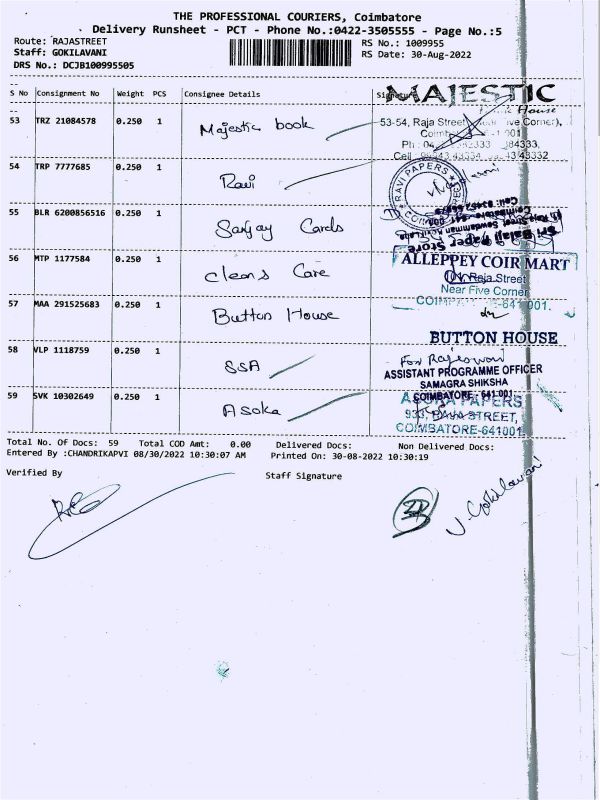 THE PROFESSIONAL COURIERS, Coimbatore
Delivery Runsheet - PCT - Phone No.:0422-3505555 - Page No.:5
Route: RAJASTREET
Staff: GOKILAVANI
DRS No.: DCJB100995505
RS No.: 1009955
RS Date: 30-Aug-2022
S No Consignment No Weight PCS Consignee Details Signature
MAJESTIC
House
53 TRZ 21084578 0.250 1 Majestic book
53-54, Raja Street, Five Corner),
54 TRP 7777685 0.250 1 Ravi
RAVI PAPERS
55 BLR 6200856516 0.250 1 Sanjay Cards
Sri Balaji Paper Store
56 MTP 1177584 0.250 1 Cleans Care
ALLEPPEY COIR MART
101, Raja Street
Near Five Corner
COIMBATORE-641 001.
57 MAA 291525683 0.250 1 Button House
BUTTON HOUSE
58 VLP 1118759 0.250 1 SSA
For Rajeswari
ASSISTANT PROGRAMME OFFICER
SAMAGRA SHIKSHA
COIMBATORE - 641 001
59 SVK 10302649 0.250 1 Asoka
ASOKA PAPERS
933, RAJA STREET,
COIMBATORE-641001
Total No. Of Docs: 59 Total COD Amt: 0.00 Delivered Docs: Non Delivered Docs:
Entered By :CHANDRIKAPVI 08/30/2022 10:30:07 AM Printed On: 30-08-2022 10:30:19
Verified By Staff Signature
V. Gokilavani